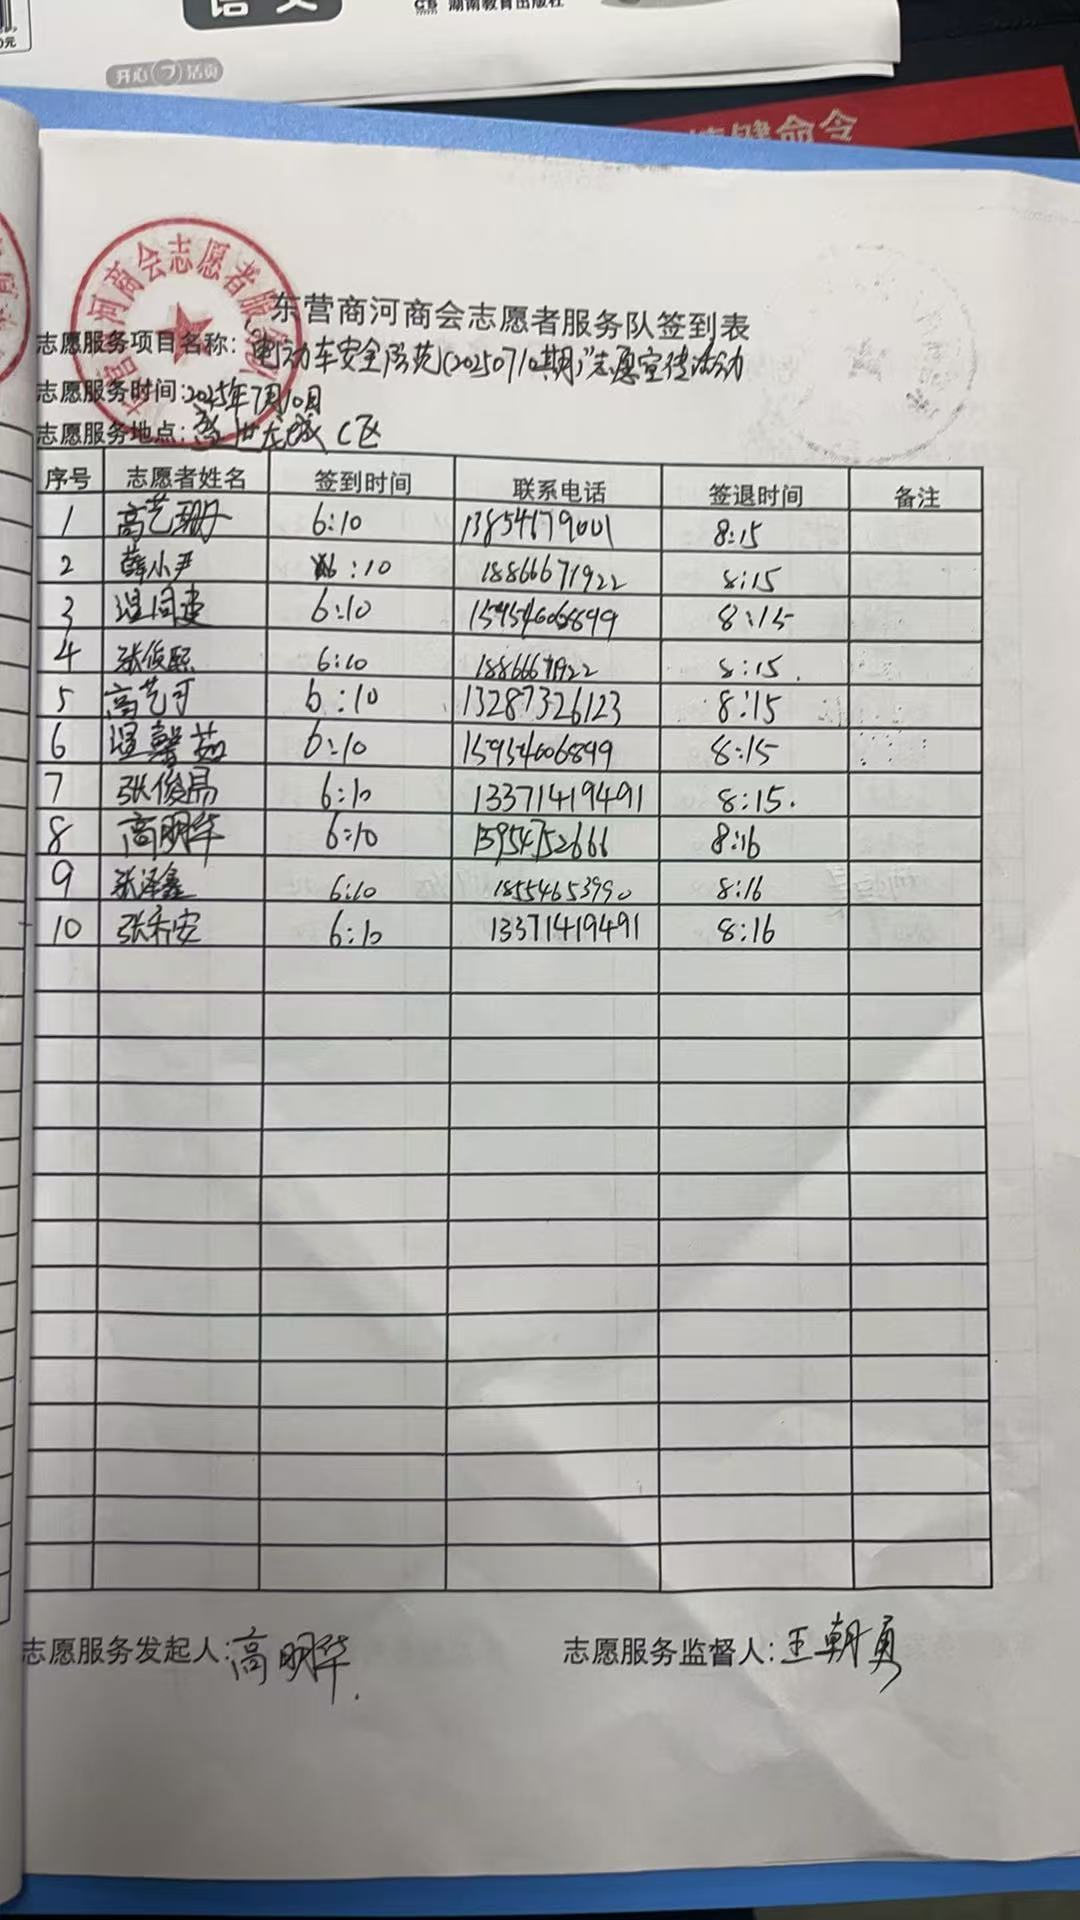 语文
湖南教育出版社
开心 活页
东营商河商会志愿者服务队签到表
志愿服务项目名称：电动车安全防范(20250710期)"志愿宣传活动
志愿服务时间：2025年7月10日
志愿服务地点：盛世龙城C区
序号 志愿者姓名 签到时间 联系电话 签退时间 备注
1 高艺珊 6:10 13854679001 8:15
2 薛小尹 6:10 18866671922 8:15
3 6:10 15954606899 8:15
4 张俊熙 6:10 18866671922 8:15
5 高艺可 6:10 13287326123 8:15
6 温馨茹 6:10 15954606899 8:15
7 张俊昂 6:10 13371419491 8:15
8 高明华 6:10 8:16
9 张泽鑫 6:10 18554653990 8:16
10 张乔安 6:10 13371419491 8:16
志愿服务发起人：高明华
志愿服务监督人：王朝勇